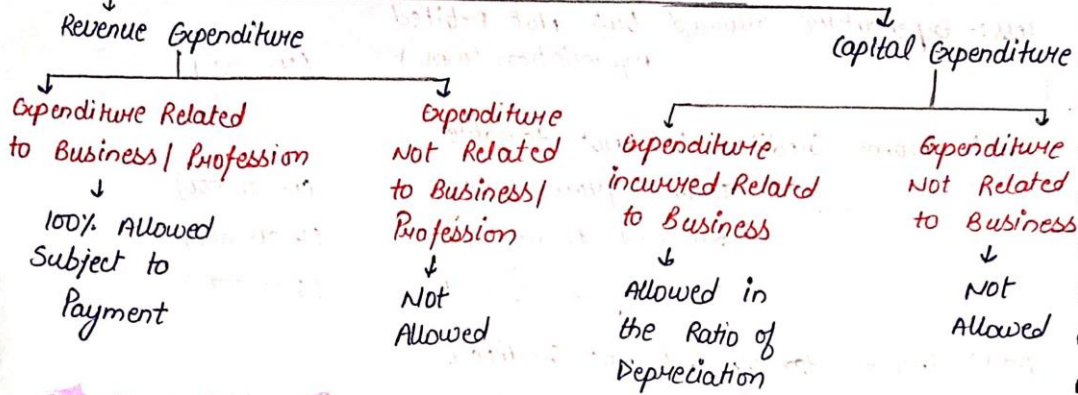 Revenue Expenditure
Capital Expenditure
Expenditure Related
to Business / Profession
↓
100% Allowed
Subject to
Payment
Expenditure
Not Related
to Business /
Profession
↓
Not
Allowed
Expenditure
incurred Related
to Business
↓
Allowed in
the Ratio of
Depreciation
Expenditure
Not Related
to Business
↓
Not
Allowed